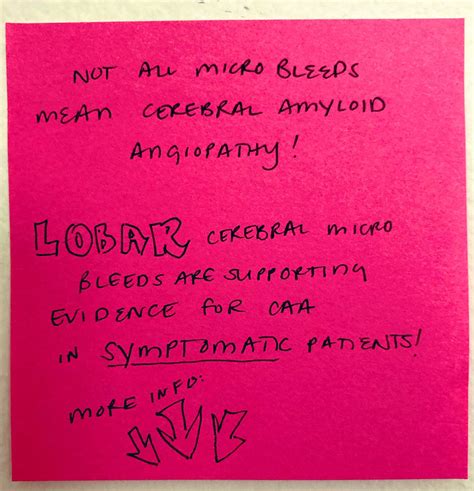 NOT ALL MICRO BLEEDS
MEAN CEREBRAL AMYLOID
ANGIOPATHY!
LOBAR CEREBRAL MICRO
BLEEDS ARE SUPPORTING
EVIDENCE FOR CAA
IN SYMPTOMATIC PATIENTS!
MORE INFO: